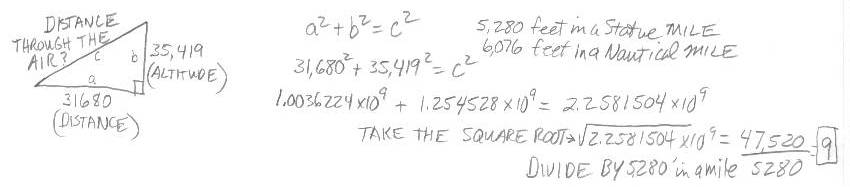 DISTANCE
THROUGH THE
AIR?
c
b
35,419
(ALTITUDE)
a
31680
(DISTANCE)
a² + b² = c²
5,280 feet in a Statue MILE
6,076 feet in a Nautical MILE
31,680² + 35,419² = c²
1.0036224 x10⁹ + 1.254528 x10⁹ = 2.2581504 x10⁹
TAKE THE SQUARE ROOT → √2.2581504 x10⁹ = 47,520 = 9
DIVIDE BY 5,280' in a mile 5280